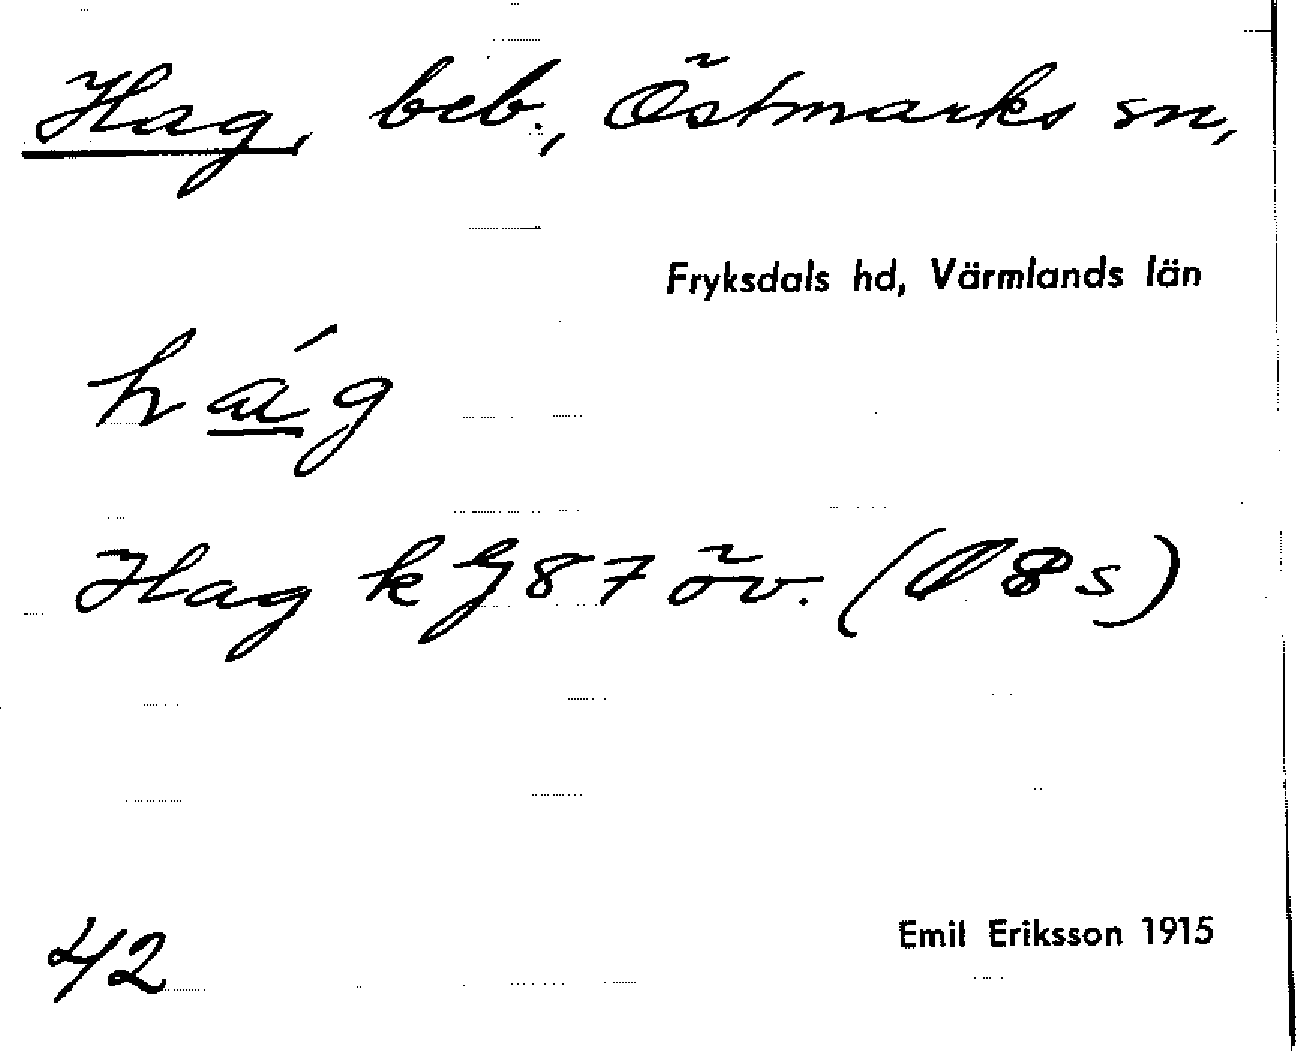 Hag, beb., Östmarks sn,
Fryksdals hd, Värmlands län
hág
Hag k G 87 öv. (O 8 s)
42
Emil Eriksson 1915